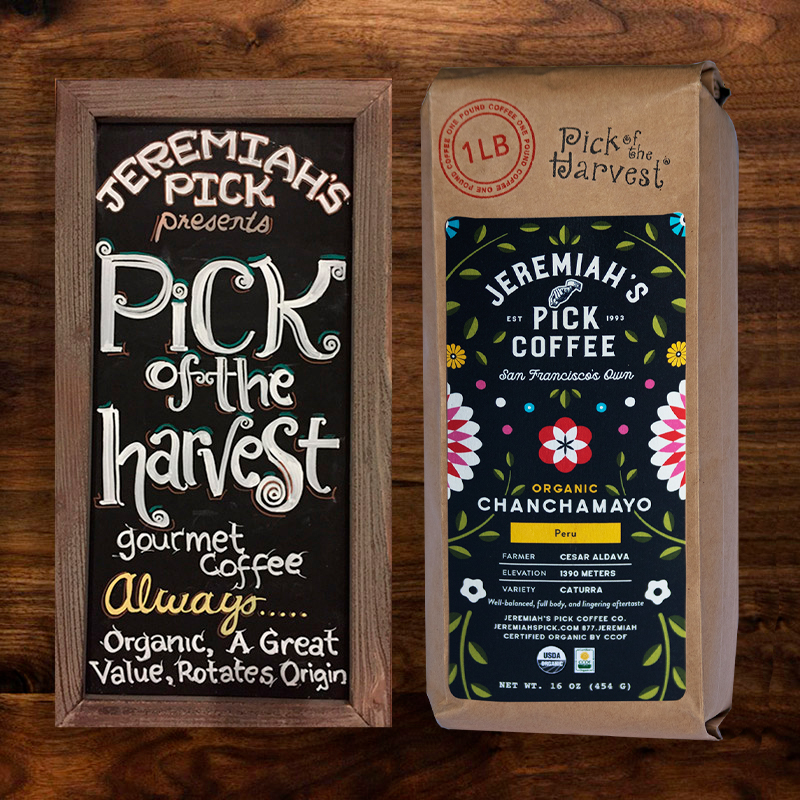 JEREMIAH'S
PICK
presents
PiCK
of the
harvest
gourmet
Coffee
Always.....
Organic, A Great
Value, Rotates Origin
ONE POUND COFFEE ONE POUND COFFEE ONE POUND COFFEE
1LB
Pick of the
Harvest
JEREMIAH'S
EST 1993
PICK
COFFEE
San Francisco's Own
ORGANIC
CHANCHAMAYO
Peru
FARMER CESAR ALDAVA
ELEVATION 1390 METERS
VARIETY CATURRA
Well-balanced, full body, and lingering aftertaste
JEREMIAH'S PICK COFFEE CO.
JEREMIAHSPICK.COM 877.JEREMIAH
CERTIFIED ORGANIC BY CCOF
USDA
ORGANIC
NET WT. 16 OZ (454 G)